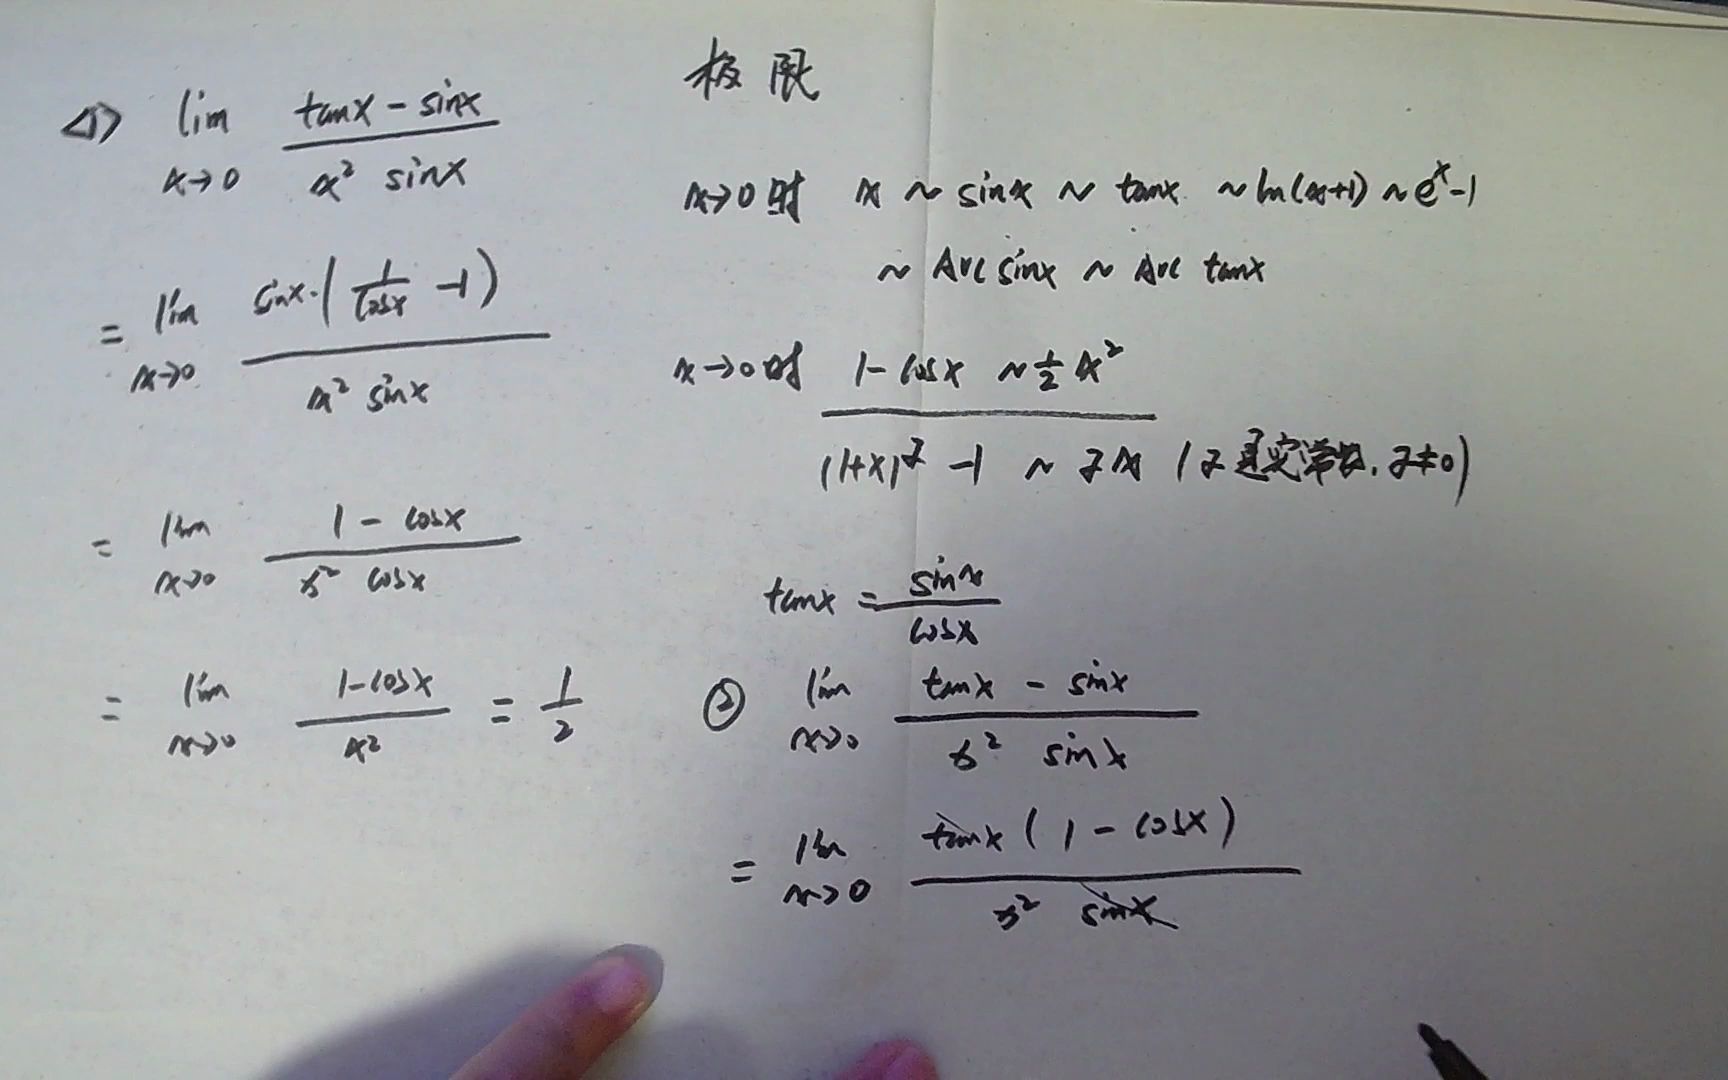 极限
<1> lim x→0 (tanx - sinx) / (x² sinx)
= lim x→0 sinx·(1/cosx - 1) / (x² sinx)
= lim x→0 (1 - cosx) / (x² cosx)
= lim x→0 (1-cosx) / x² = 1/2
x→0时 x ~ sinx ~ tanx ~ ln(x+1) ~ eˣ-1
~ Arc sinx ~ Arc tanx
x→0时 1-cosx ~ 1/2 x²
(1+x)^α -1 ~ αx (α是实常数, α≠0)
tanx = sinx / cosx
② lim x→0 (tanx - sinx) / (x² sinx)
= lim x→0 tanx (1 - cosx) / (x² sinx)